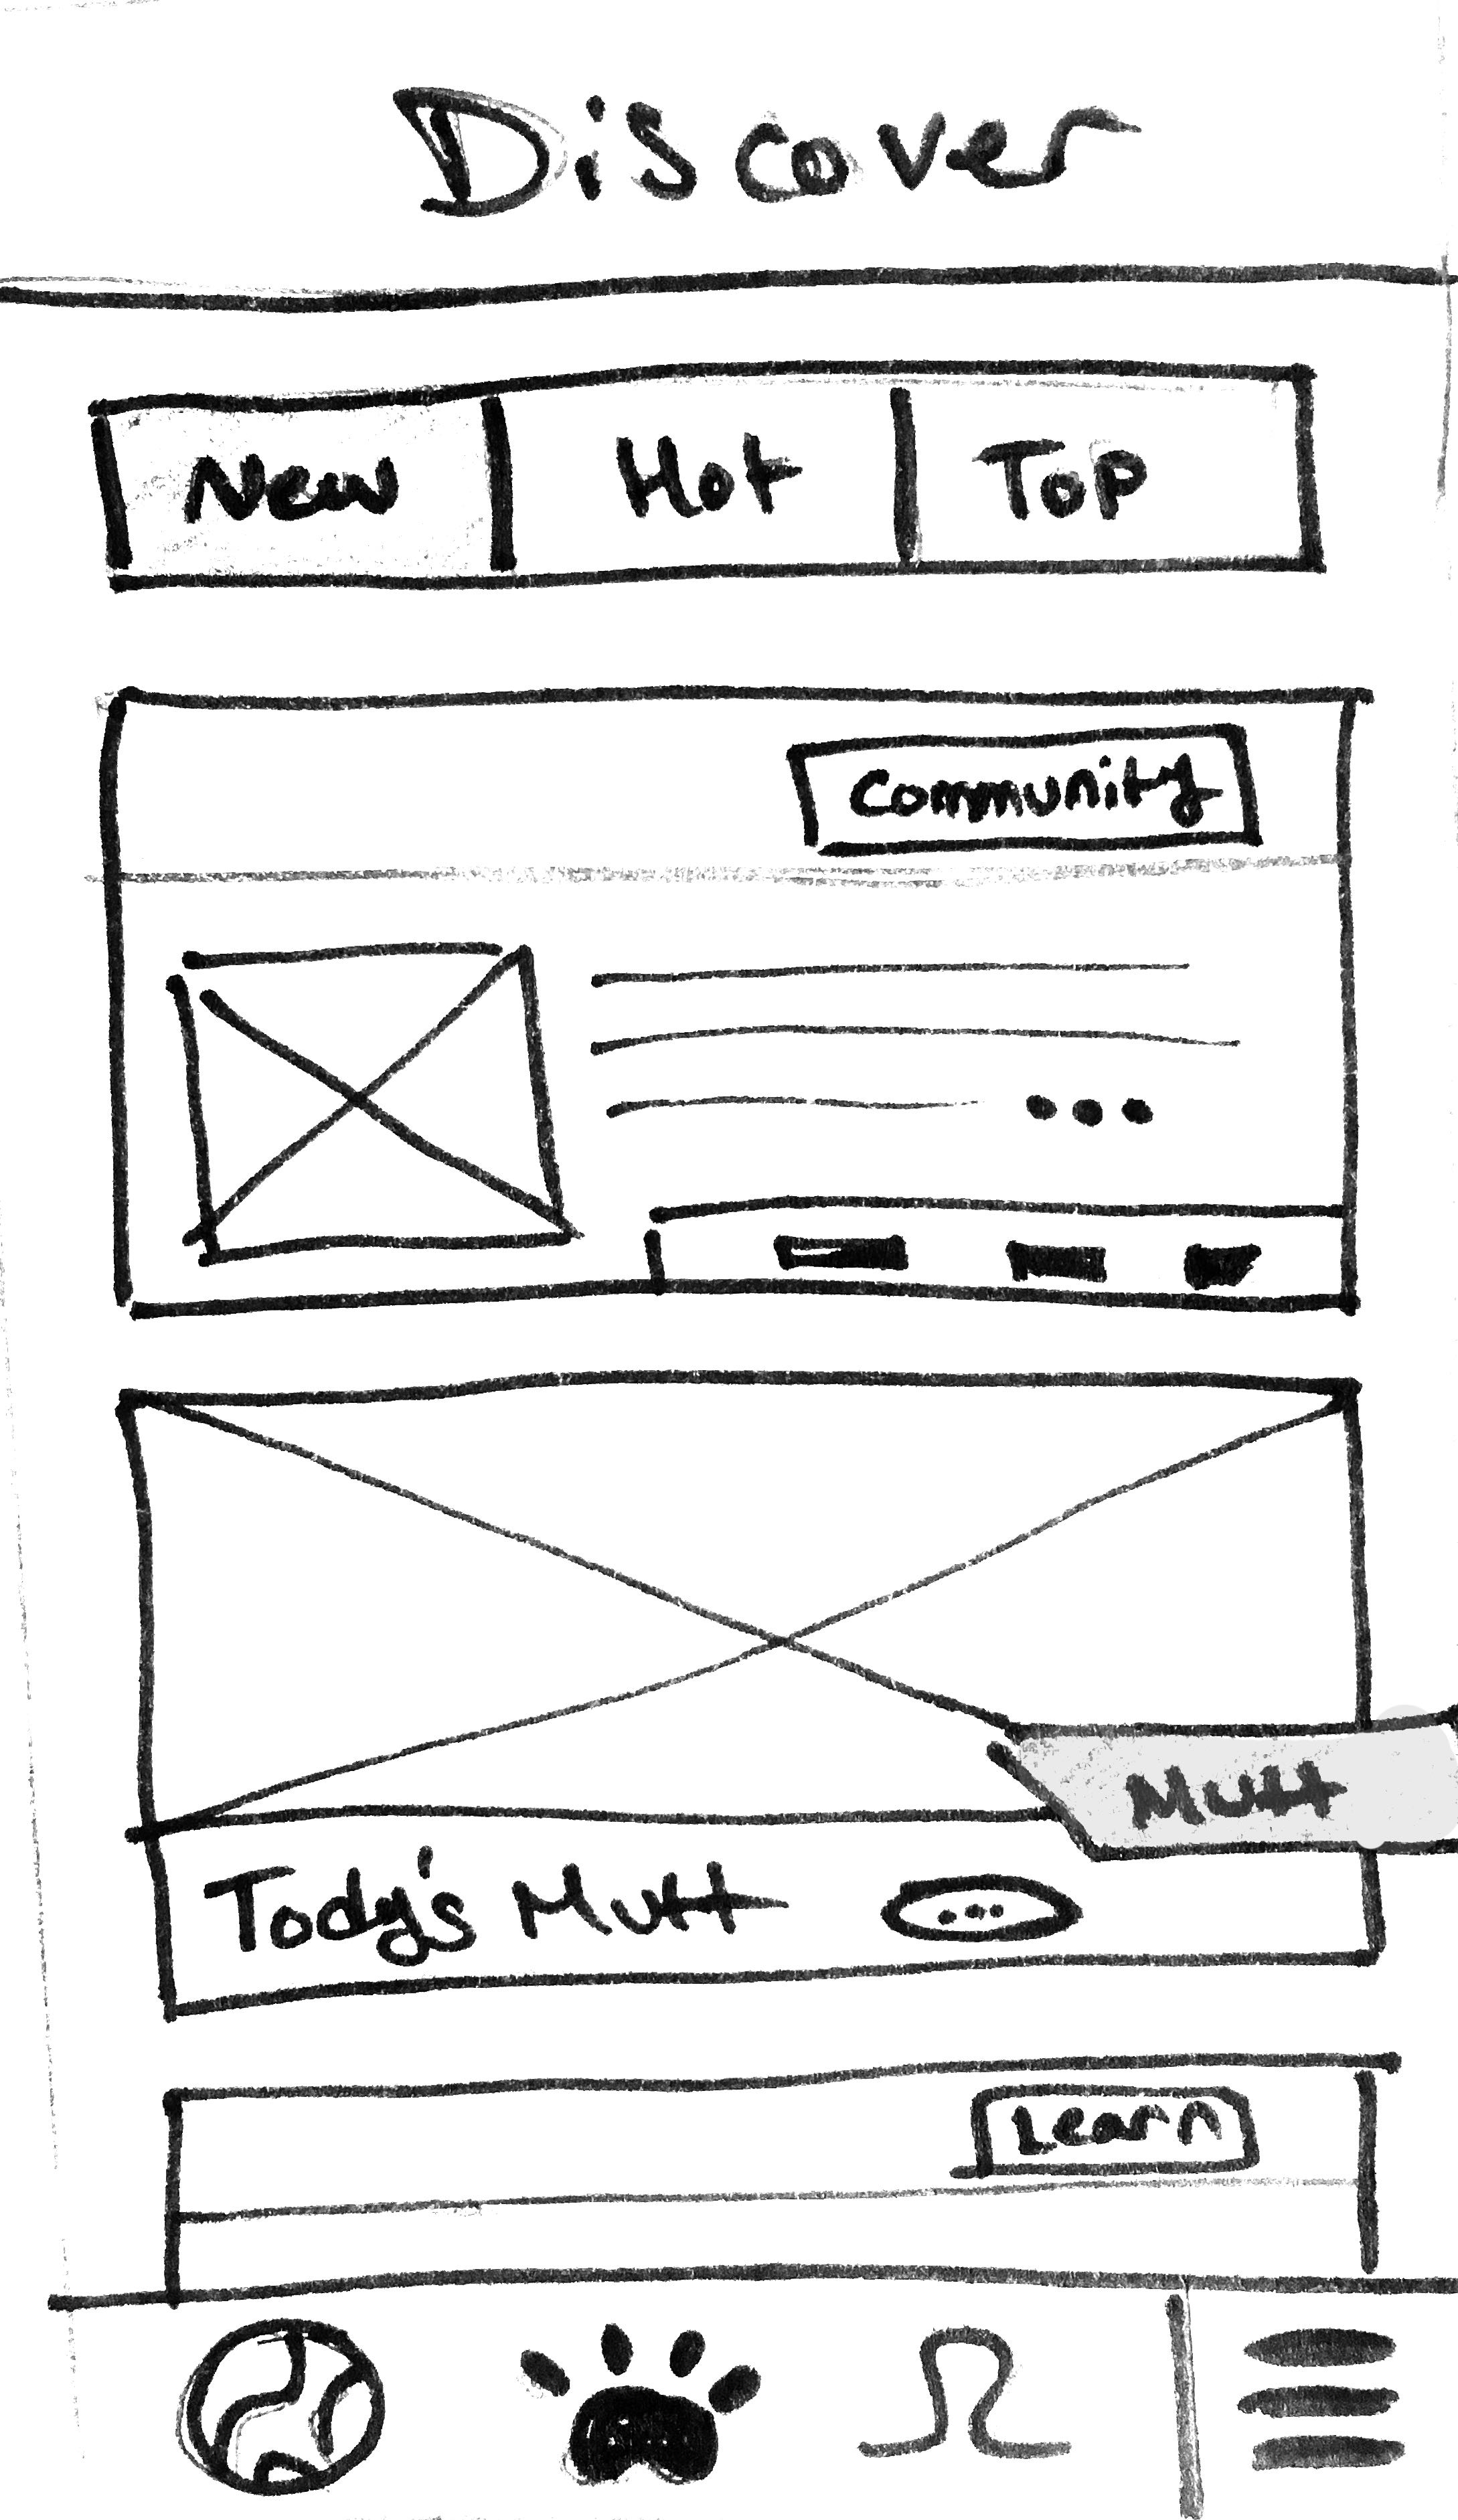 Discover
New Hot Top
Community
Mutt
Tody's Mutt
Learn